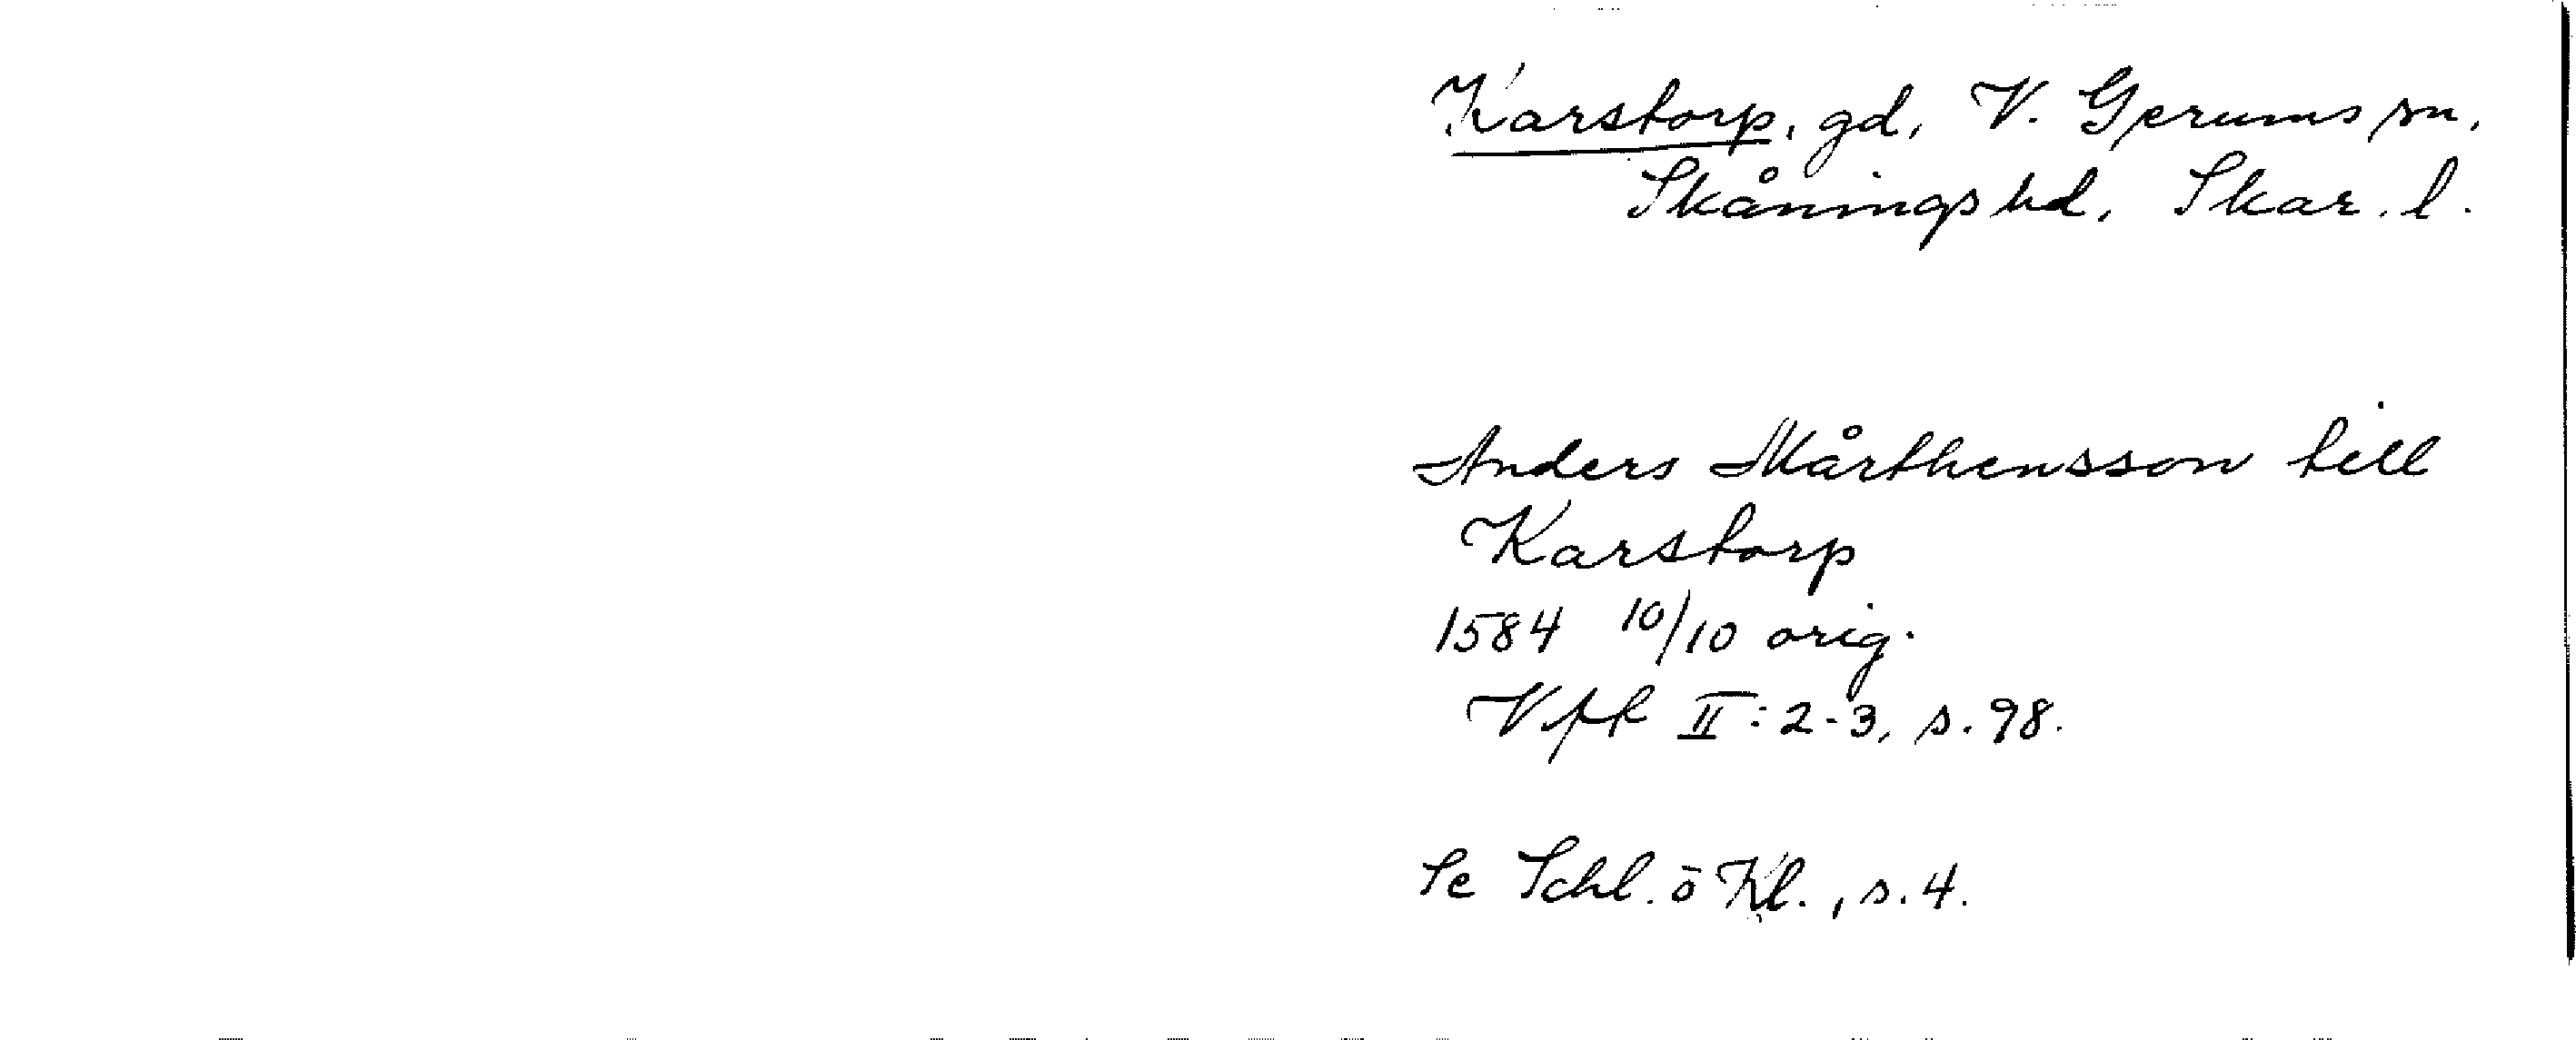 Karstorp, gd, V. Gerums sn,
Skånings hd, Skar. l.
Anders Mårthensson till
Karstorp
1584 10/10 orig.
Vfft II: 2-3, s. 98.
Se Schl. ö Kl., s. 4.